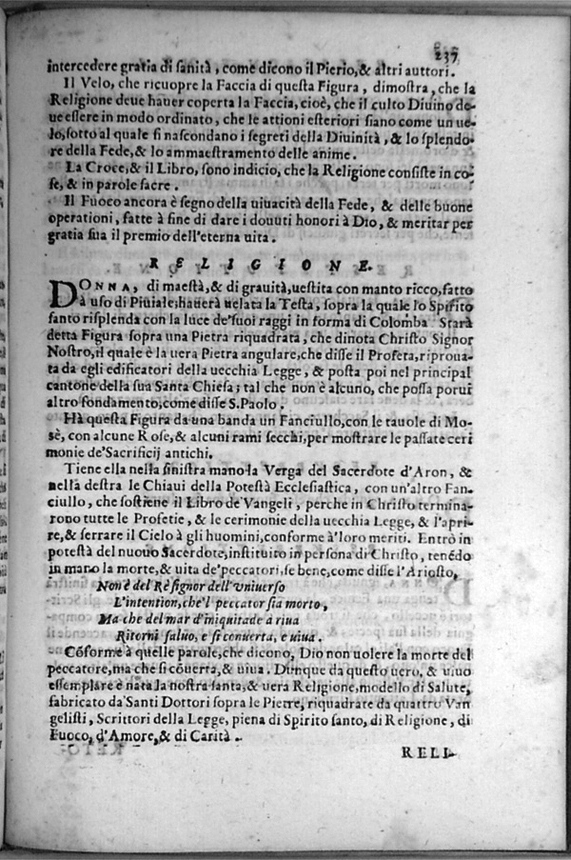 237
intercedere gratia di sanità, come dicono il Pierio, & altri auttori.
Il Velo, che ricuopre la Faccia di questa Figura, dimostra, che la
Religione deue hauer coperta la Faccia, cioè, che il culto Diuino de-
ue essere in modo ordinato, che le attioni esteriori siano come un ue-
lo, sotto al quale si nascondano i segreti della Diuinità, & lo splendo-
re della Fede, & lo ammaestramento delle anime.
La Croce, & il Libro, sono indicio, che la Religione consiste in co-
se, & in parole sacre.
Il Fuoco ancora è segno della uiuacità della Fede, & delle buone
operationi, fatte à fine di dare i douuti honori à Dio, & meritar per
gratia sua il premio dell'eterna uita.
RELIGIONE.
DONNA, di maestà, & di grauità, uestita con manto ricco, fatto
à uso di Piuiale, hauerà uelata la Testa, sopra la quale lo Spirito
santo risplenda con la luce de'suoi raggi in forma di Colomba Starà
detta Figura sopra una Pietra riquadrata, che dinota Christo Signor
Nostro, il quale è la uera Pietra angulare, che disse il Profeta, riproua-
ta da gli edificatori della uecchia Legge, & posta poi nel principal
cantone della sua Santa Chiesa; tal che non è alcuno, che possa porui
altro fondamento, come disse S. Paolo.
Hà questa Figura da una banda un Fanciullo, con le tauole di Mo-
sè, con alcune Rose, & alcuni rami secchi, per mostrare le passate ceri
monie de'Sacrificij antichi.
Tiene ella nella sinistra mano la Verga del Sacerdote d'Aron, &
nella destra le Chiaui della Potestà Ecclesiastica, con un'altro Fan-
ciullo, che sostiene il Libro de'Vangeli, perche in Christo termina-
rono tutte le Profetie, & le cerimonie della uecchia Legge, & l'apri-
re, & serrare il Cielo à gli huomini, conforme à loro meriti. Entrò in
potestà del nuouo Sacerdote, instituito in persona di Christo, tenẽdo
in mano la morte, & uita de'peccatori, se bene, come disse l'Ariosto,
Non è del Rè signor dell'vniuerso
L'intention, che'l peccator sia morto,
Ma che del mar d'iniquitade a riua
Ritorni saluo, e si conuerta, e uiua.
Cõforme à quelle parole, che dicono, Dio non uolere la morte del
peccatore, ma che si cõuerta, & uiua. Dunque da questo uero, & uiuo
essemplare è nata la nostra santa, & uera Religione, modello di Salute,
fabricato da'Santi Dottori sopra le Pietre, riquadrate da quattro Van
gelisti, Scrittori della Legge, piena di Spirito santo, di Religione, di
Fuoco, d'Amore, & di Carità.
RELI-